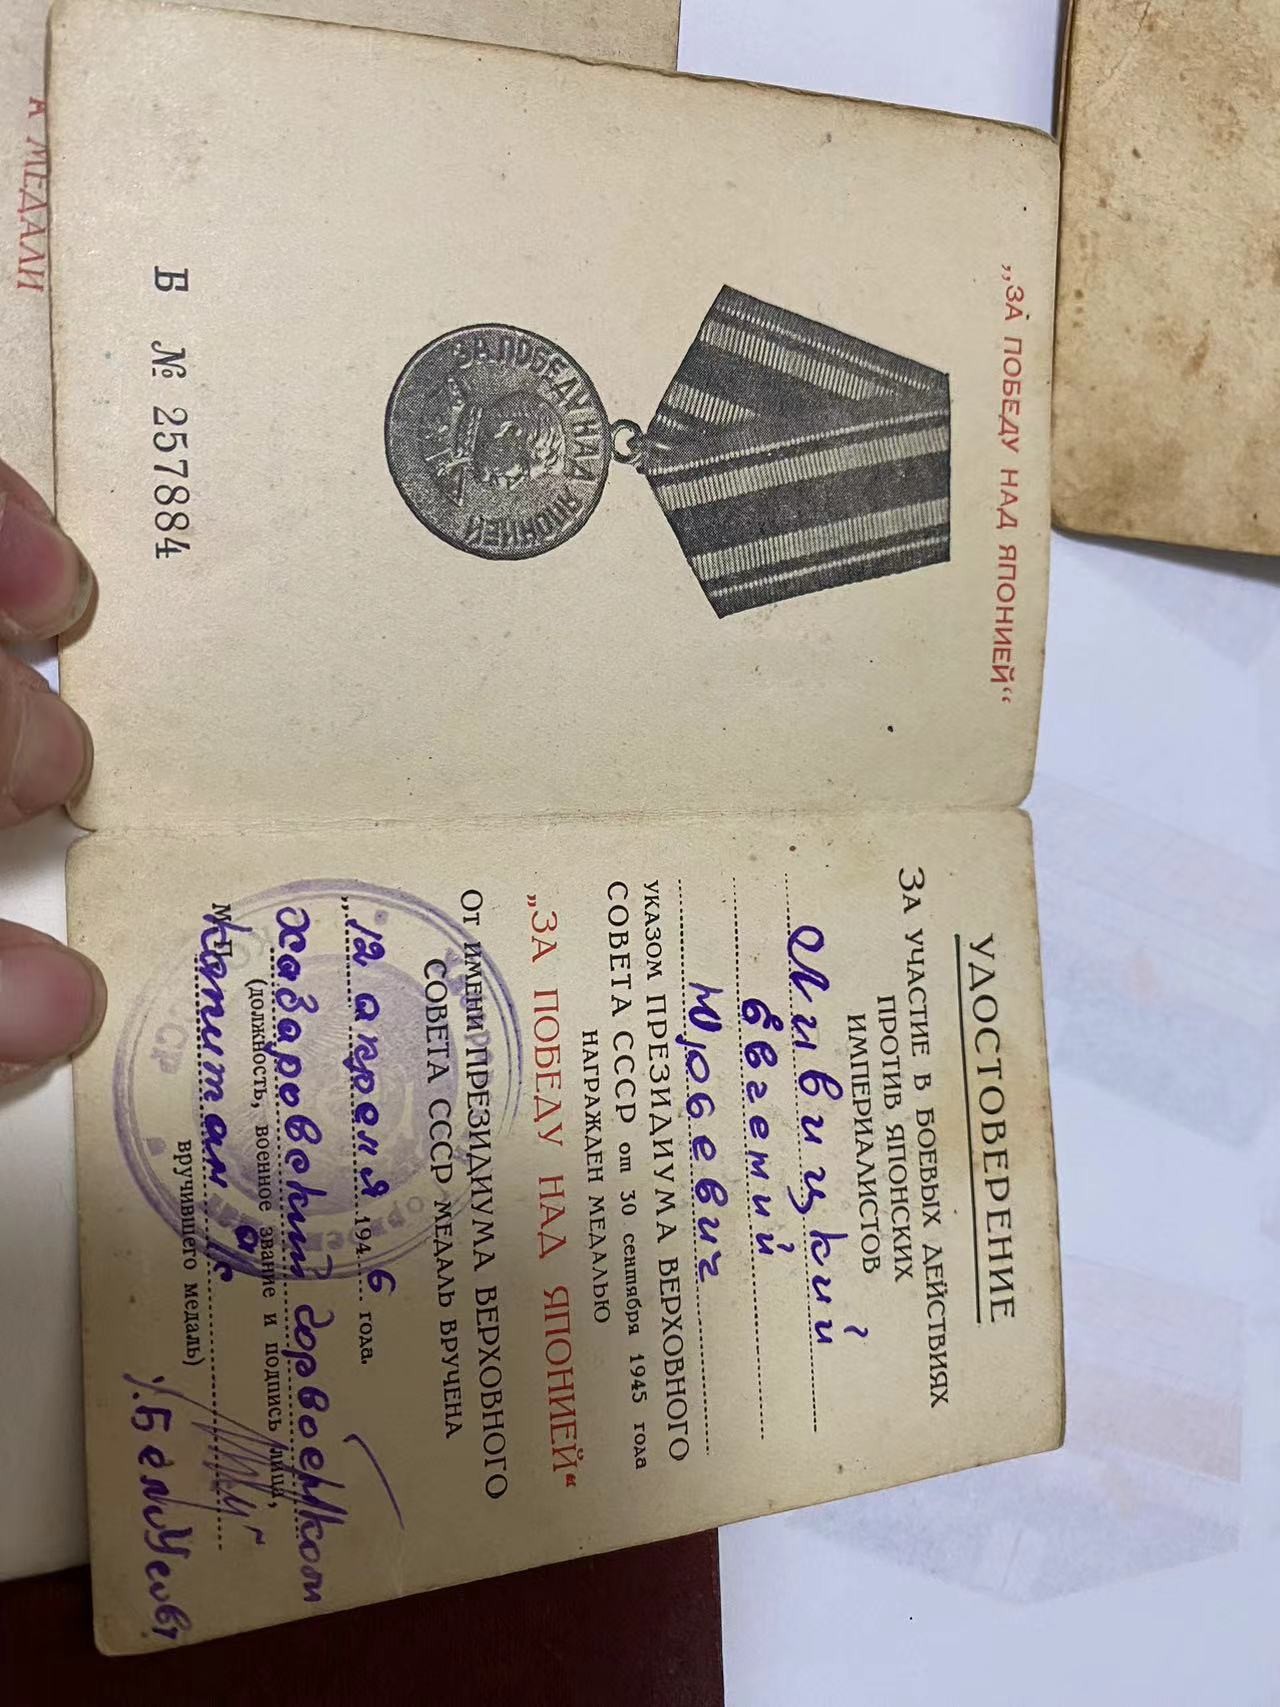 К МЕДАЛИ
„ЗА ПОБЕДУ НАД ЯПОНИЕЙ“
ЗА ПОБЕДУ НАД ЯПОНИЕЙ
Б № 257884
УДОСТОВЕРЕНИЕ
ЗА УЧАСТИЕ В БОЕВЫХ ДЕЙСТВИЯХ
ПРОТИВ ЯПОНСКИХ
ИМПЕРИАЛИСТОВ
Ливицкий
Евгений
Юрьевич
УКАЗОМ ПРЕЗИДИУМА ВЕРХОВНОГО
СОВЕТА СССР от 30 сентября 1945 года
НАГРАЖДЕН МЕДАЛЬЮ
„ЗА ПОБЕДУ НАД ЯПОНИЕЙ“
ОТ ИМЕНИ ПРЕЗИДИУМА ВЕРХОВНОГО
СОВЕТА СССР МЕДАЛЬ ВРУЧЕНА
„12 апреля 1946 года.
Хабаровский горвоенком
(должность, военное звание и подпись лица,
М. П.
Капитан
вручившего медаль)